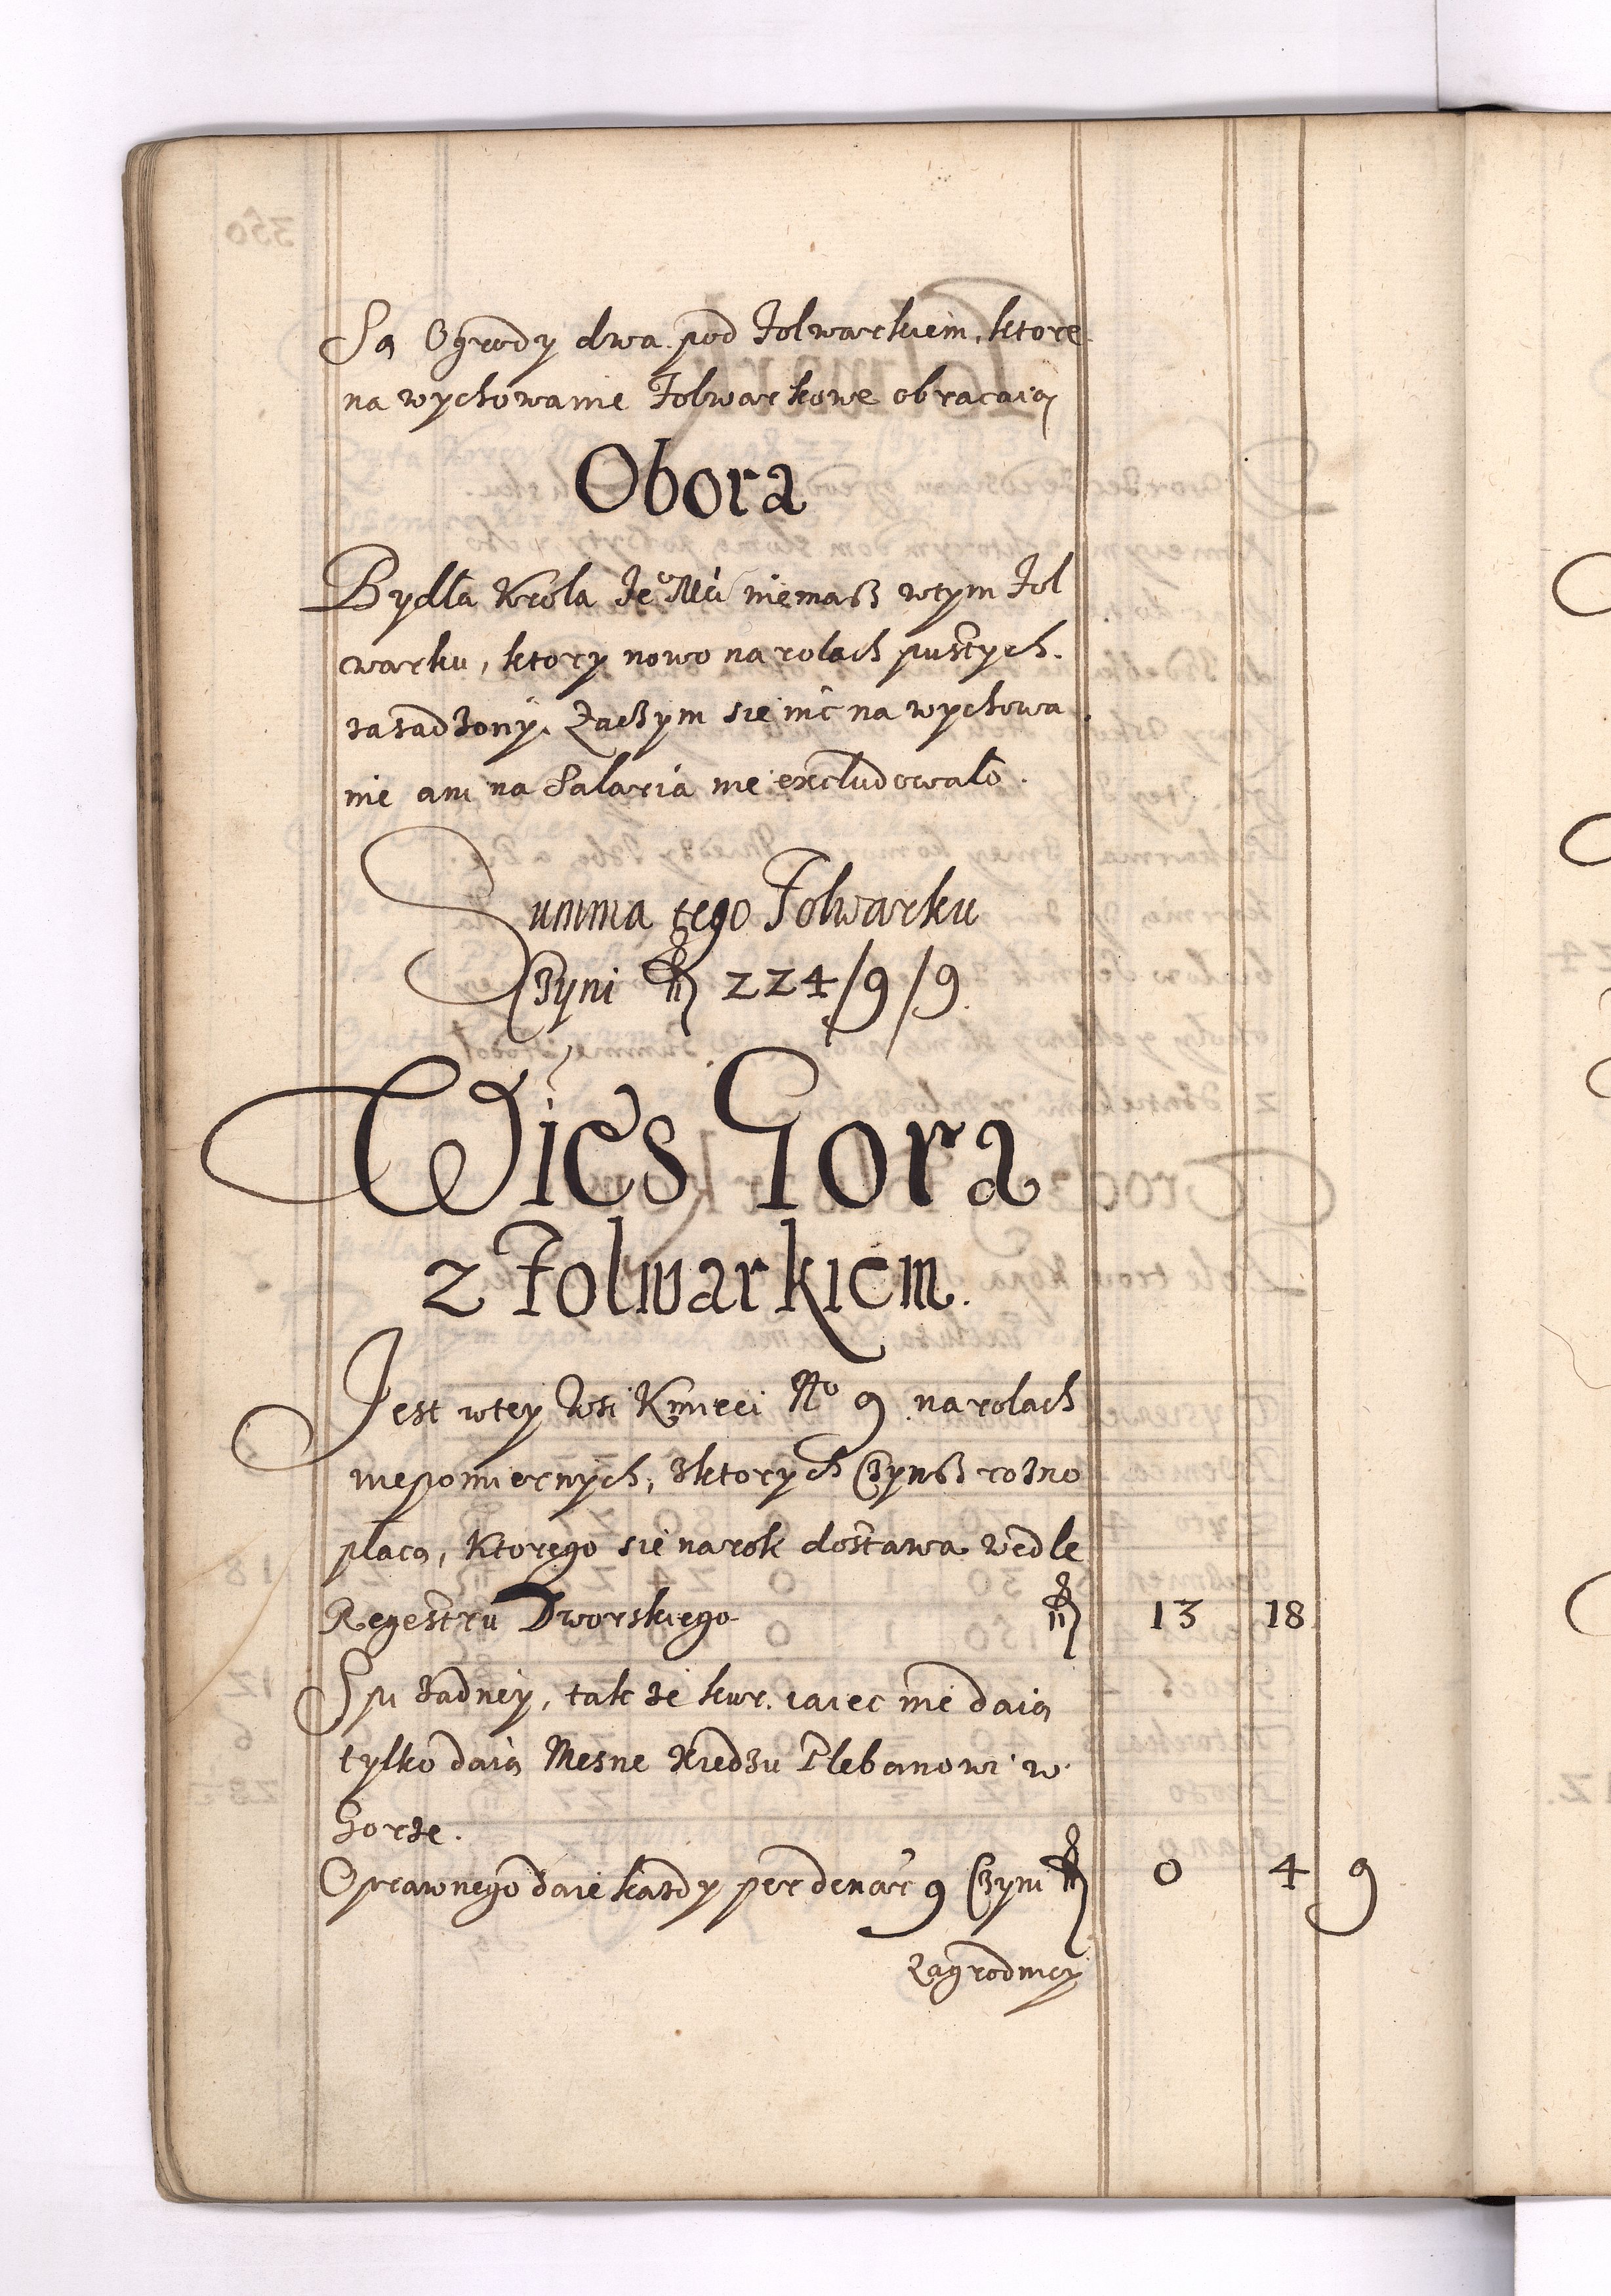 Są Ogrody dwa pod Folwarkiem, ktore
na wychowanie Folwarkowe obracaią
Obora
Bydła Krola Je° Mći niemasz wtym Fol
warku, ktory nowo na rolach pustych
zasadzony. Zaczym sie nic na wychowa
nie ani na Salaria nie excludowało.
Summa tego Folwarku
Czyni fl 224/9/9.
Wies Gora
z Folwarkiem.
Jest wtey Wsi Kmieci N° 9 na rolach
niepomiernych, zktorych Czynsz rozno
płacą, Ktorego sie narok dostawa wedle
Regestru Dworskiego fl 13 18
Spu żadney, tak że kur. iaiec nie daią
tylko daią Mesne Xiedzu Plebanowi w
Gorze.
Oprawnego daie kazdy per denar 9 Czyni fl 0 4 9
Zagrodnicy